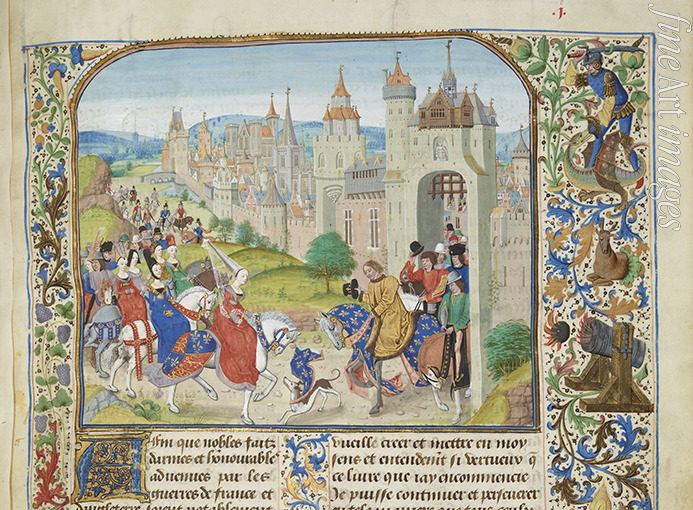 .J.
fine Art images
Afin que nobles faitz
darmes et honnourable
aduenues par les
guerres de france et
vueille creer et mettre en moy
sens et entendemt si vertueux q̃
ce liure que iay encommencie
Je puisse continuer et perseuerer